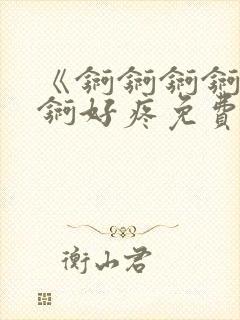 《锕锕锕锕
锕好疼免費
衡山君